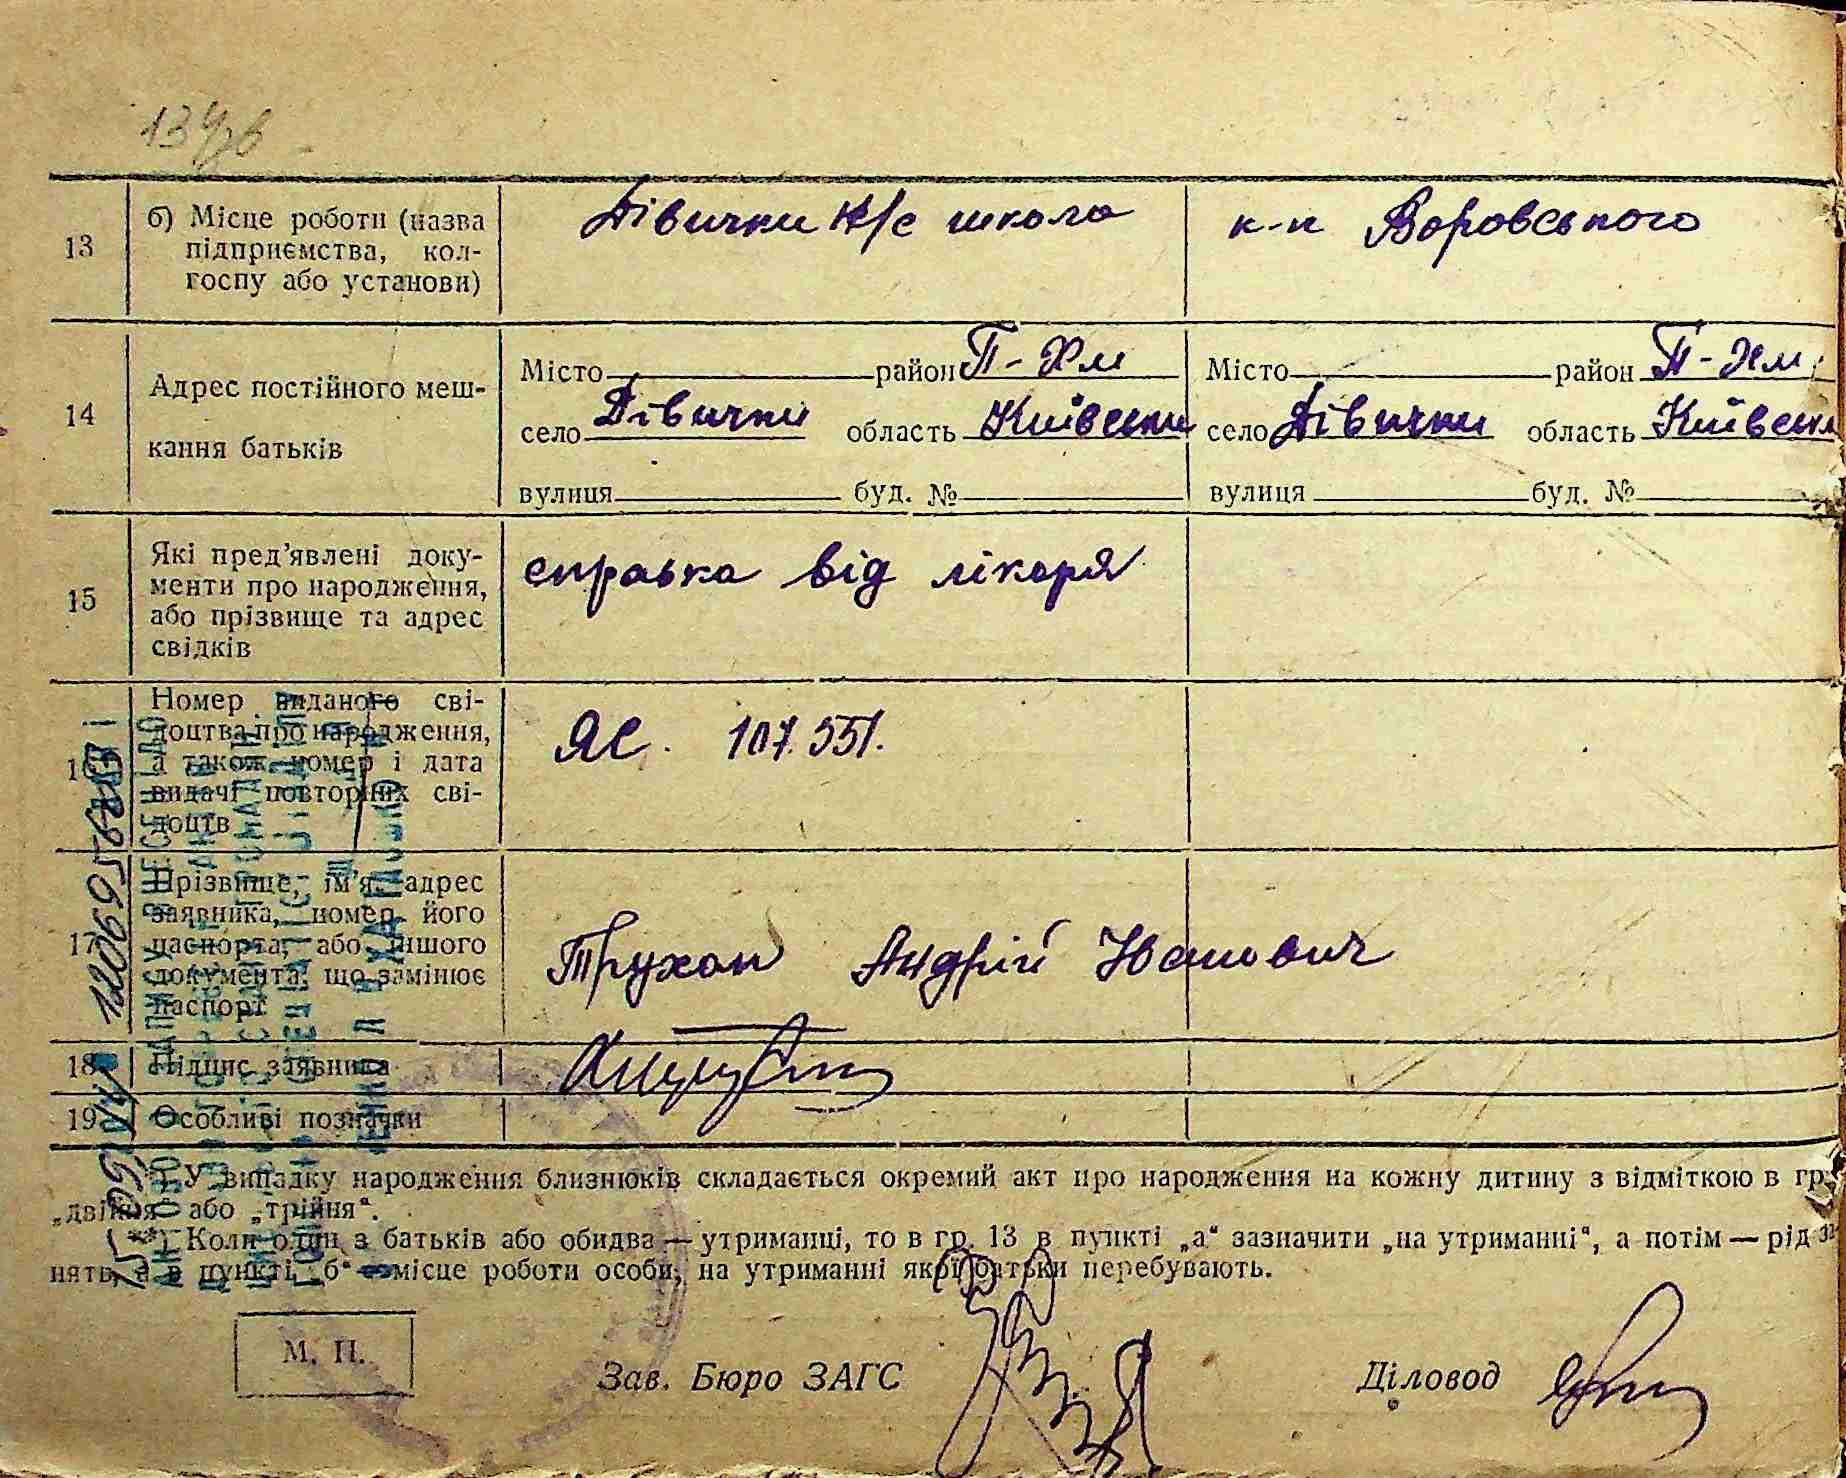 13 б) Місце роботи (назва підприємства, колгоспу або установи) Дівички н/с школа к-п Воровського
14 Адрес постійного меш-
кання батьків
Місто район П-Хм Місто район П-Хм
село Дівички область Київськ село Дівички область Київськ
вулиця буд. № вулиця буд. №
15 Які пред’явлені доку-
менти про народження,
або прізвище та адрес
свідків
справка від лікаря
16 Номер виданого сві-
доцтва про народження,
а також номер і дата
видачі повторних сві-
доцтв
ЯС. 107.551.
17 Прізвище, ім’я, адрес
заявника, номер його
паспорта, або іншого
документа, що замінює
паспорт
Трухан Андрій Иванович
18 Підпис заявника
19 Особливі позначки
*) У випадку народження близнюків складається окремий акт про народження на кожну дитину з відміткою в гр.
„двійня“ або „трійня“.
**) Коли один з батьків або обидва — утриманці, то в гр. 13 в пункті „а“ зазначити „на утриманні“, а потім — рід за
нять, а в пункті „б“ — місце роботи особи, на утриманні якої батьки перебувають.
М. П.
Зав. Бюро ЗАГС Діловод